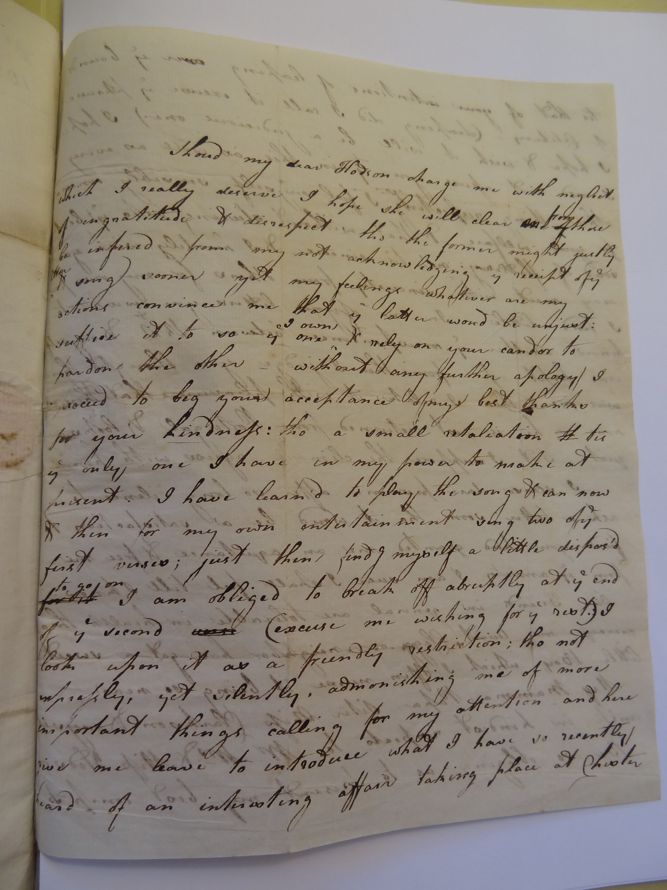 Shoud my dear Hodson charge me with neglect
which I really deserve I hope she will clear me from those
of ingratitude & disrespect tho the former might justly
be infered from my not acknowledging ye receipt of ye
song) sooner yet my feelings whatever are my
actions convince me that ye latter woud be unjust:
suffice it to say ye one I own & rely on your candor to
pardon the other – without any further apology I
proceed to beg your acceptance of my best thanks
for your kindness: tho a small retaliation tis
ye only one I have in my power to make at
present: I have learn'd to play the song & can now
& then for my own entertainment sing two of ye
first verses; just then, find myself a little dispos'd
to go on I am obliged to break off abruptly at ye end
of ye second (excuse me wishing for ye rest) I
look upon it as a friendly restriction; tho not
expressly, yet silently, admonishing me of more
important things calling for my attention and here
give me leave to introduce what I have so recently
heard of an interesting affair taking place at Chester